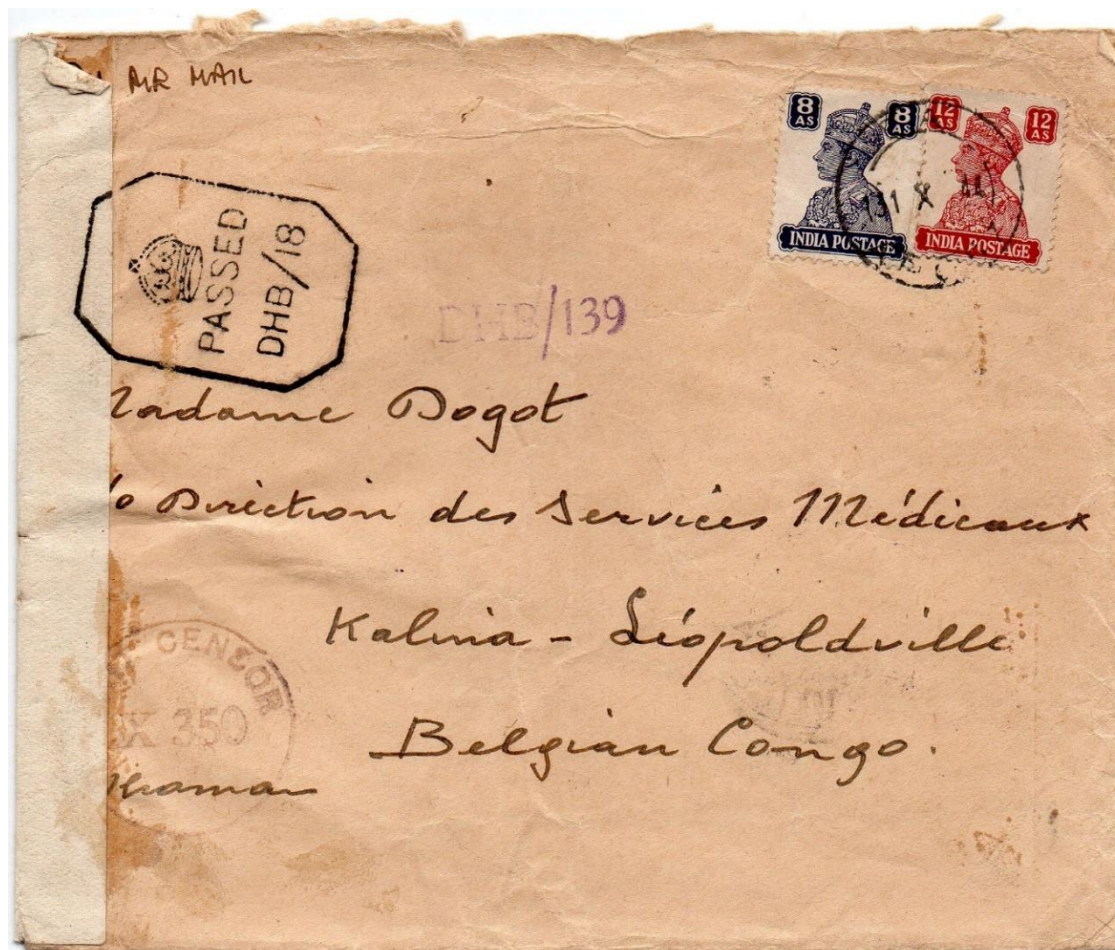 AIR MAIL
8 AS 8 AS
12 AS 12 AS
INDIA POSTAGE INDIA POSTAGE
31 X 44
PASSED
DHB/18
DHB/139
Madame Dogot
c/o Direction des Services Médicaux
Kalina - Léopoldville
Belgian Congo.
CENSOR
X 350